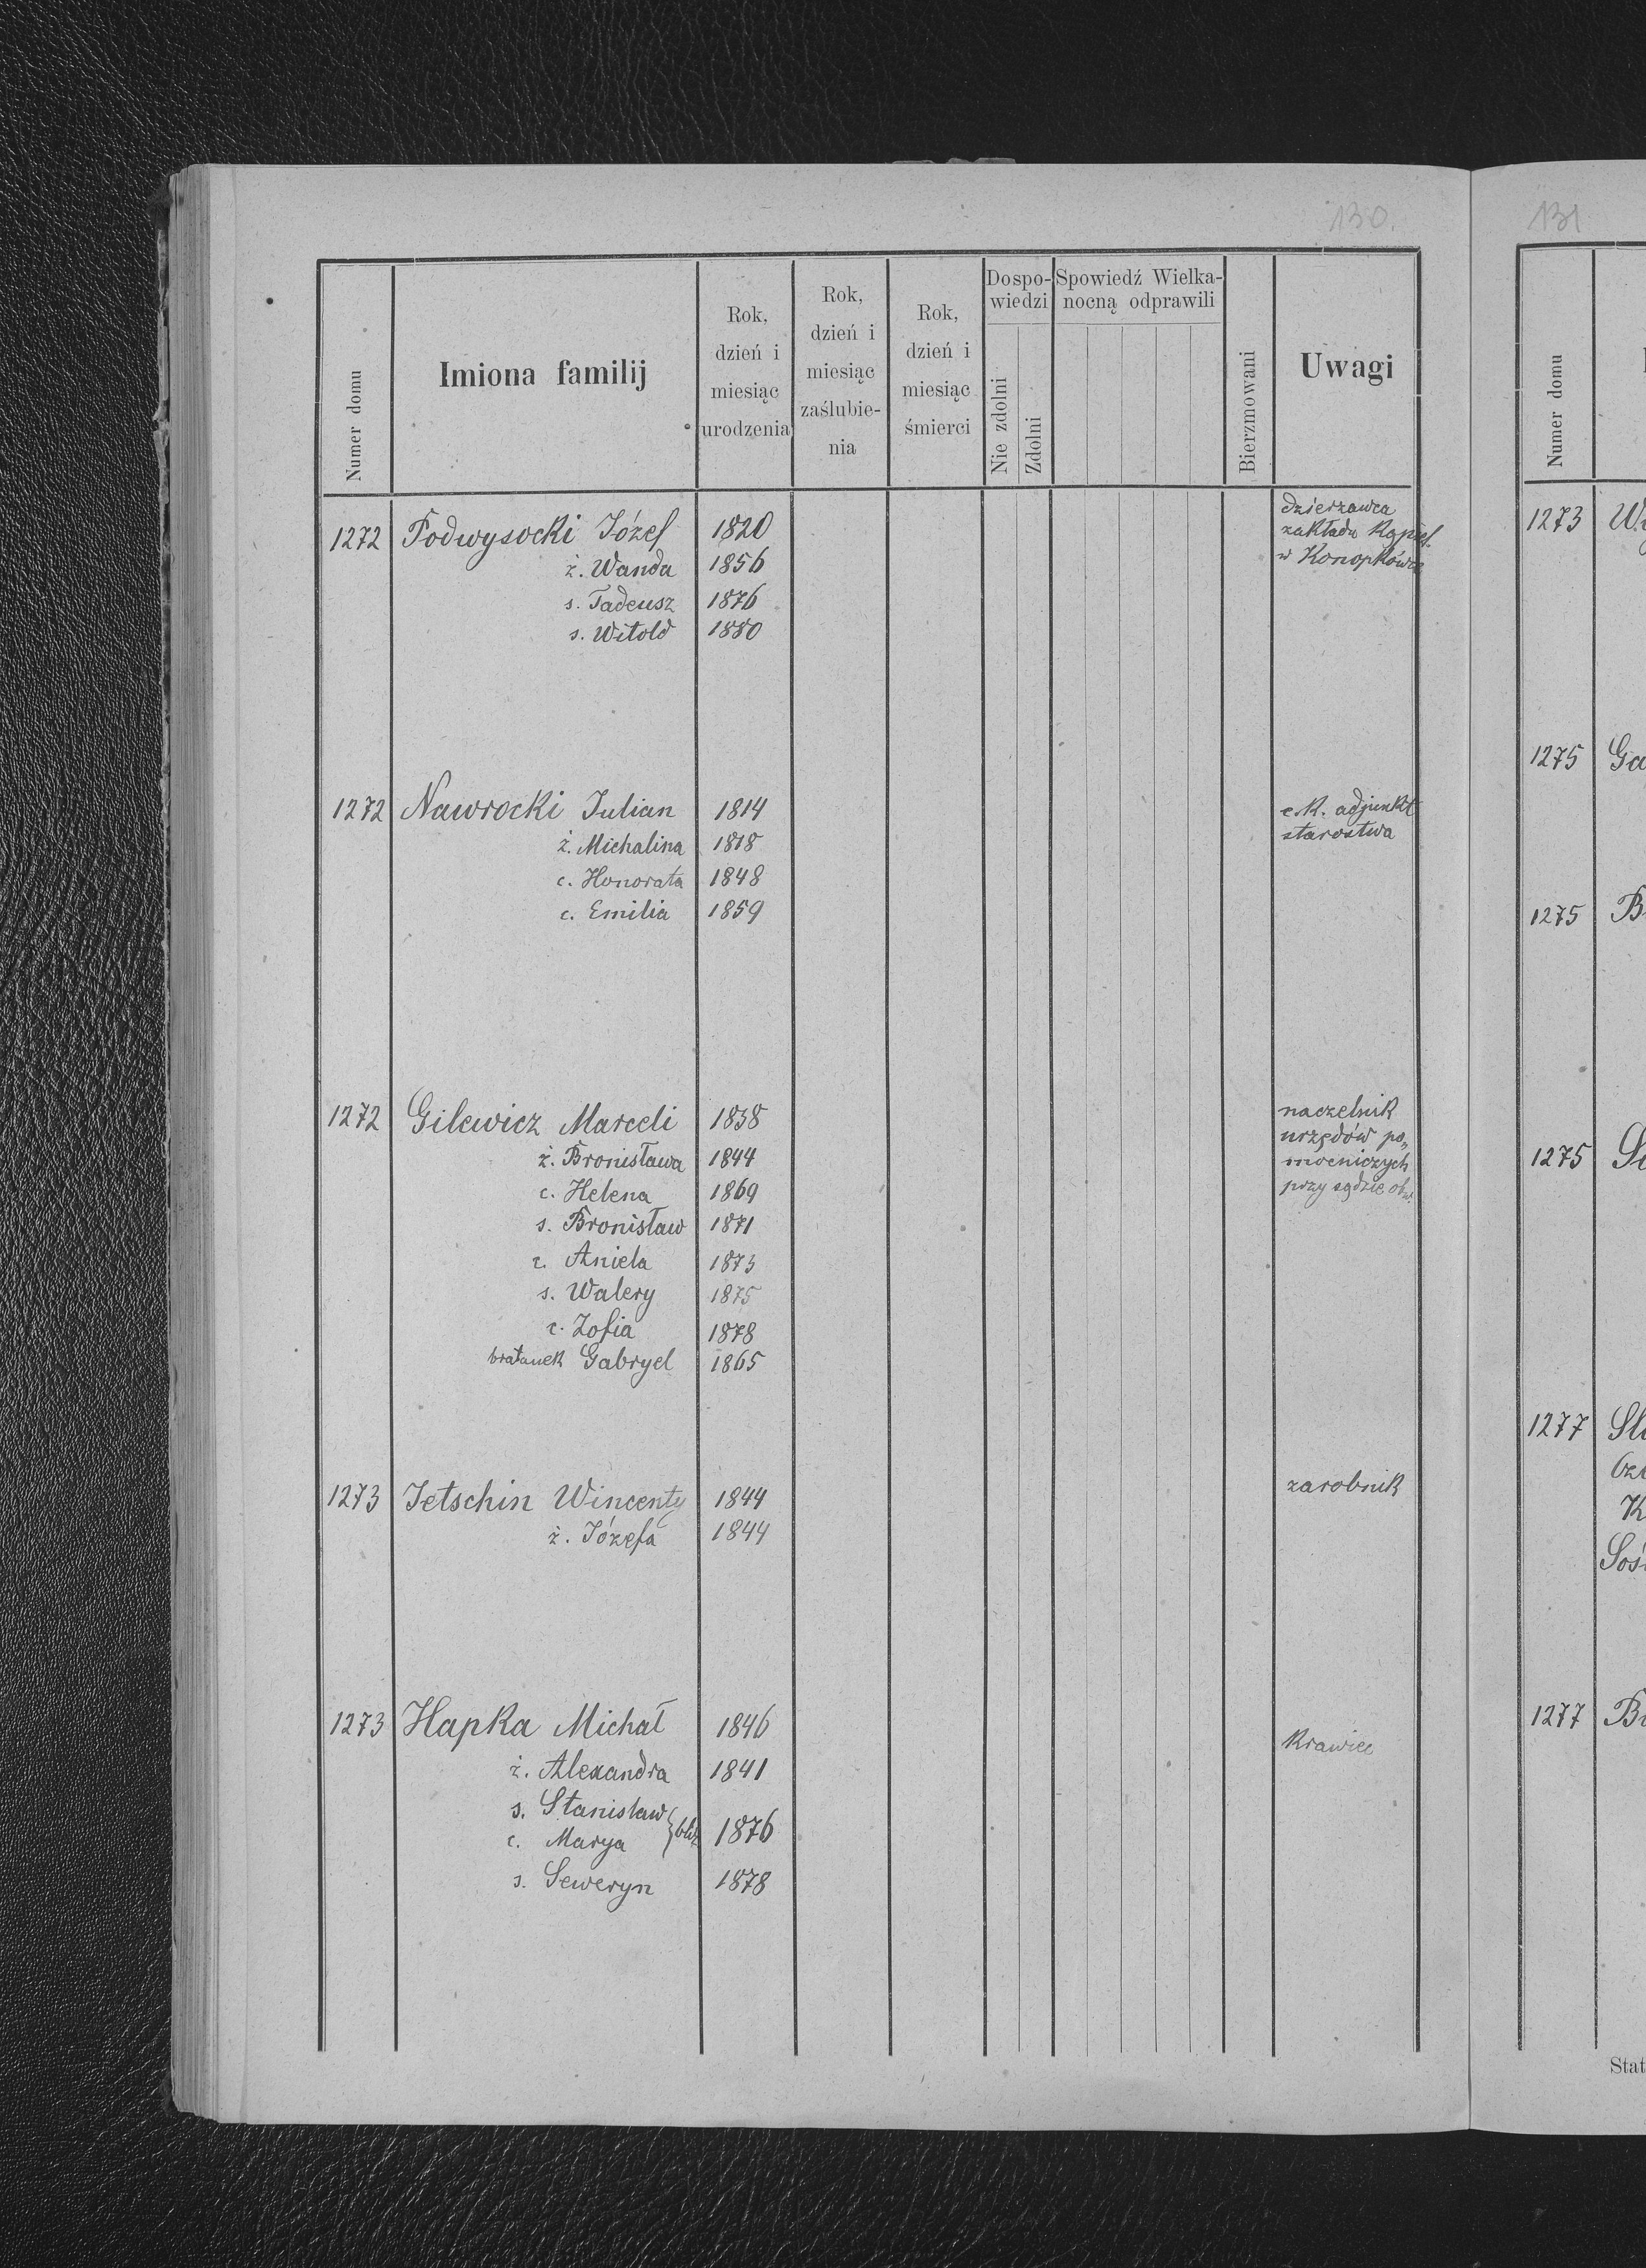 130.
Numer domu
Imiona familij
Rok, dzień i miesiąc urodzenia
Rok, dzień i miesiąc zaślubienia
Rok, dzień i miesiąc śmierci
Dospowiedzi
Nie zdolni
Zdolni
Spowiedź Wielkanocną odprawili
Bierzmowani
Uwagi
1272 Podwysocki Józef 1820 dzierżawca
ż. Wanda 1856 zakładu Kąpiel.
s. Tadeusz 1876 w Konopkówce
s. Witold 1880
1272 Nawrocki Julian 1814 c.k. adjunkt
ż. Michalina 1818 starostwa
c. Honorata 1848
c. Emilia 1859
1272 Gilewicz Marceli 1838 naczelnik
ż. Bronisława 1844 urzędów po„
c. Helena 1869 mocniczych
s. Bronisław 1871 przy sądzie obw.
c. Aniela 1873
s. Walery 1875
c. Zofia 1878
bratanek Gabryel 1865
1273 Jetschin Wincenty 1844 zarobnik
ż. Józefa 1844
1273 Hapka Michał 1846 Krawiec
ż. Alexandra 1841
s. Stanisław
c. Marya } bliź. 1876
s. Seweryn 1878
131
Numer domu
1273
1275 Ga
1275
1275
1277
1277
Stat